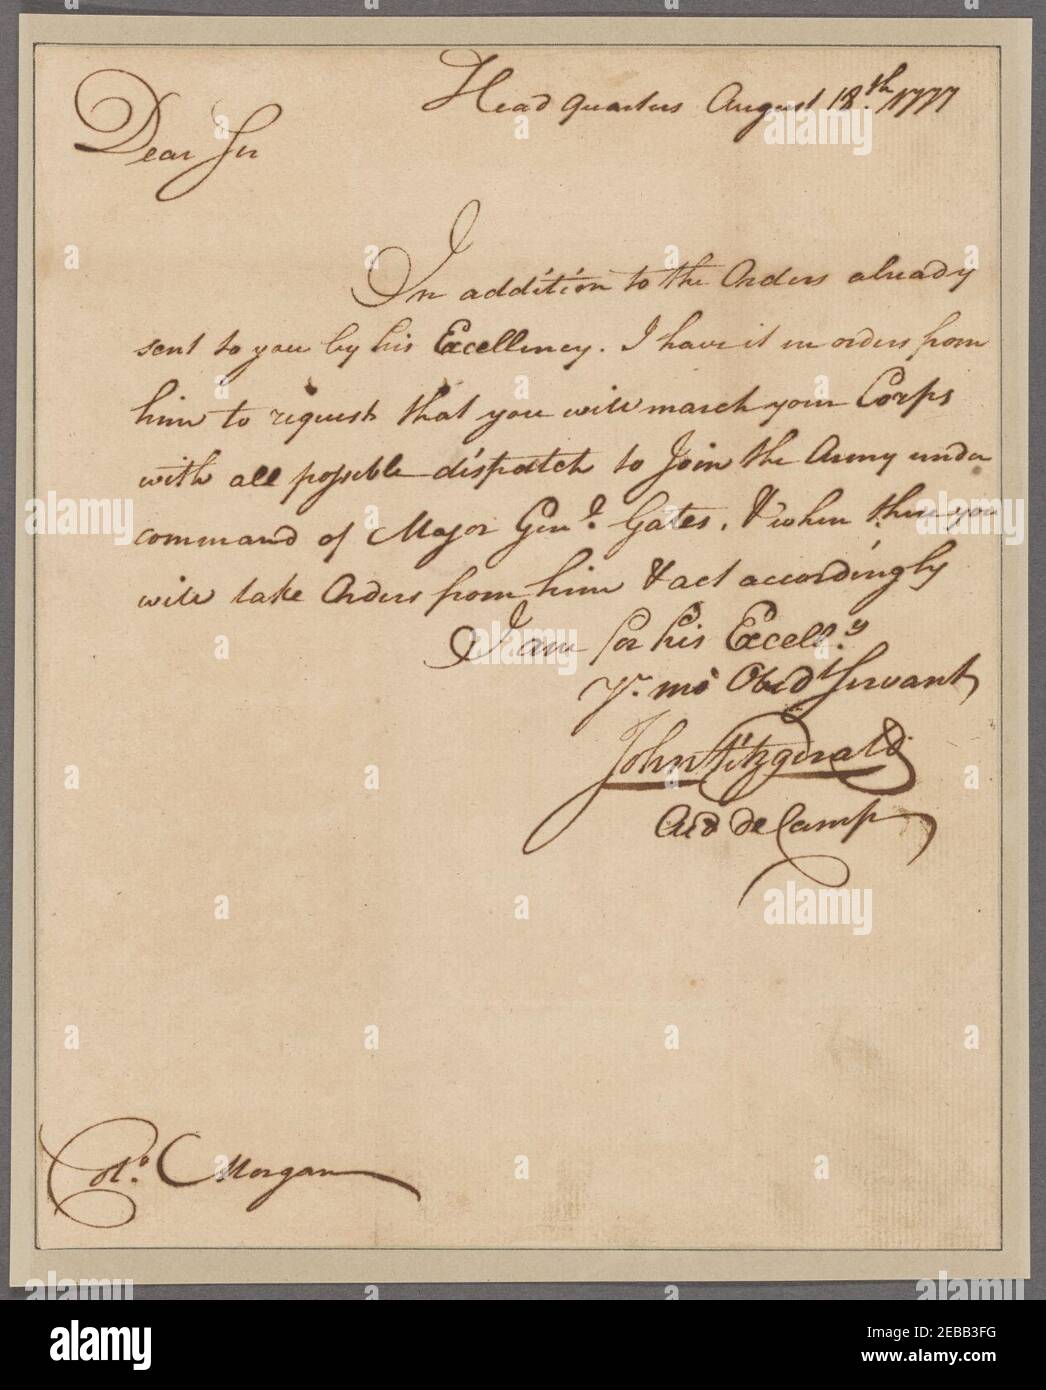 Head Quarters August 18.th 1777
Dear Sir
In addition to the Orders already
sent to you by his Excellency. I have it in orders from
him to request that you will march your Corps
with all possible dispatch to Join the Army under
command of Major Gen.l Gates, & when there you
will take Orders from him & act accordingly
I am for his Excell.y
Yr. mo Obed.t Servant
John Fitzgerald
Aid de Camp
Col.o Morgan
alamy
Image ID: 2EBB3FG
www.alamy.com